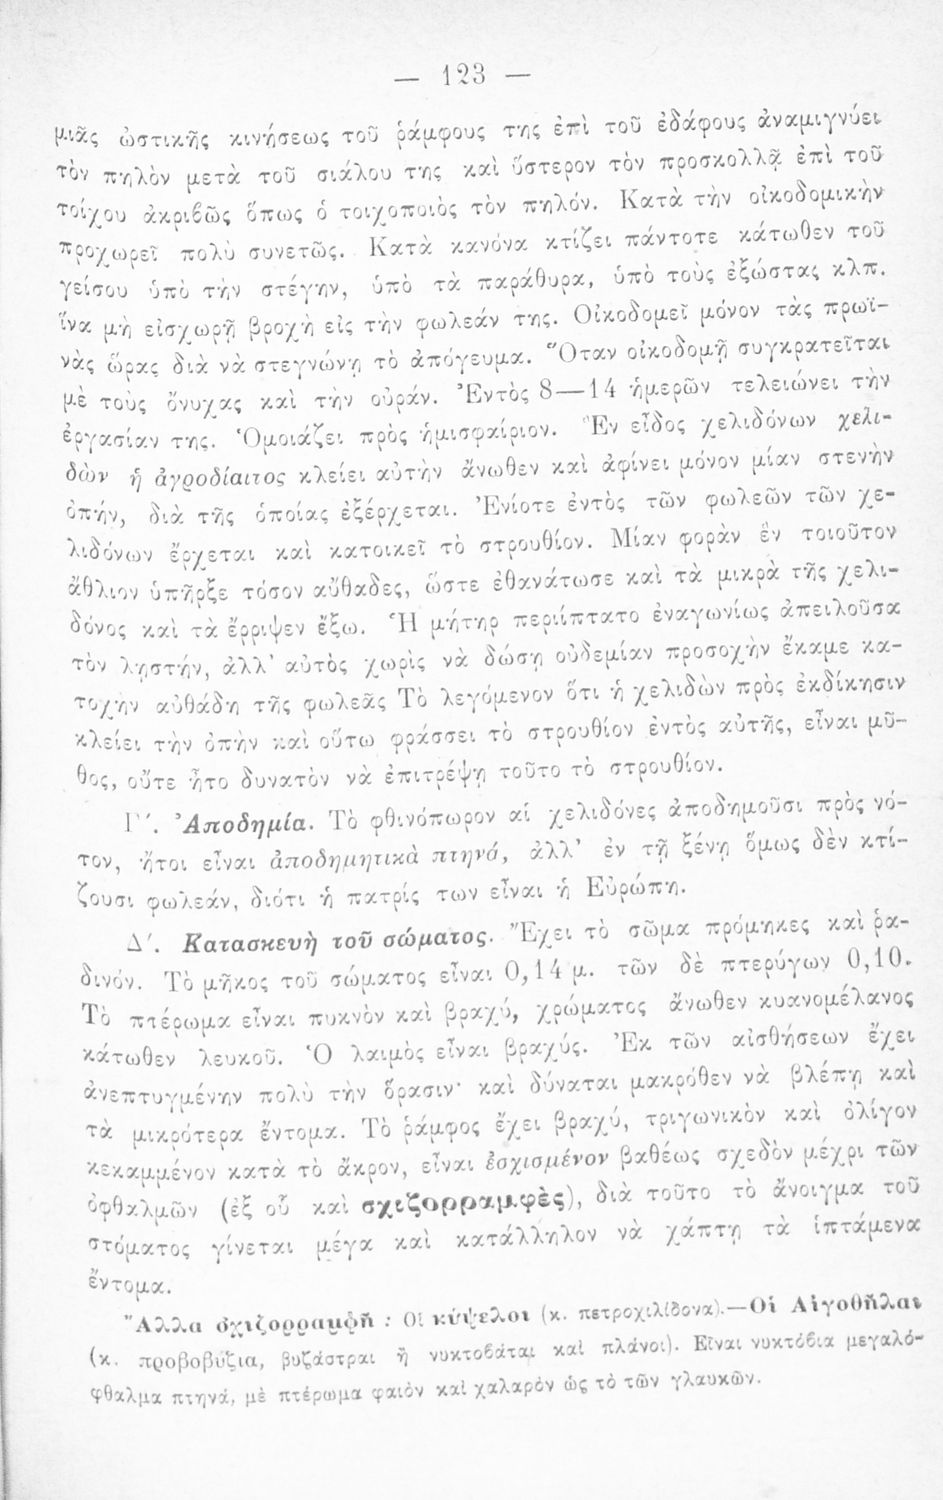 — 123 —
μιᾶς ὠστικῆς κινήσεως τοῦ ῥάμφους της ἐπὶ τοῦ ἐδάφους ἀναμιγνύει
τὸν πηλὸν μετὰ τοῦ σιάλου της καὶ ὕστερον τὸν προσκολλᾷ ἐπὶ τοῦ
τοίχου ἀκριβῶς ὅπως ὁ τοιχοποιὸς τὸν πηλόν. Κατὰ τὴν οἰκοδομικὴν
προχωρεῖ πολὺ συνετῶς. Κατὰ κανόνα κτίζει πάντοτε κάτωθεν τοῦ
γείσου ὑπὸ τὴν στέγην, ὑπὸ τὰ παράθυρα, ὑπὸ τοὺς ἐξώστας κλπ.
ἵνα μὴ εἰσχωρῇ βροχὴ εἰς τὴν φωλεάν της. Οἰκοδομεῖ μόνον τὰς πρωϊ-
νὰς ὥρας διὰ νὰ στεγνώνῃ τὸ ἀπόγευμα. Ὅταν οἰκοδομῇ συγκρατεῖται
μὲ τοὺς ὄνυχας καὶ τὴν οὐράν. Ἐντὸς 8—14 ἡμερῶν τελειώνει τὴν
ἐργασίαν της. Ὁμοιάζει πρὸς ἡμισφαίριον. Ἓν εἶδος χελιδόνων χελι-
δὼν ἡ ἀγροδίαιτος κλείει αὐτὴν ἄνωθεν καὶ ἀφίνει μόνον μίαν στενὴν
ὀπήν, διὰ τῆς ὁποίας ἐξέρχεται. Ἐνίοτε ἐντὸς τῶν φωλεῶν τῶν χε-
λιδόνων ἔρχεται καὶ κατοικεῖ τὸ στρουθίον. Μίαν φορὰν ἓν τοιοῦτον
ἄθλιον ὑπῆρξε τόσον αὔθαδες, ὥστε ἐθανάτωσε καὶ τὰ μικρὰ τῆς χελι-
δόνος καὶ τὰ ἔρριψεν ἔξω. Ἡ μήτηρ περιίπτατο ἐναγωνίως ἀπειλοῦσα
τὸν λῃστήν, ἀλλ' αὐτὸς χωρὶς νὰ δώσῃ οὐδεμίαν προσοχὴν ἔκαμε κα-
τοχὴν αὐθάδη τῆς φωλεᾶς Τὸ λεγόμενον ὅτι ἡ χελιδὼν πρὸς ἐκδίκησιν
κλείει τὴν ὀπὴν καὶ οὕτω φράσσει τὸ στρουθίον ἐντὸς αὐτῆς, εἶναι μῦ-
θος, οὔτε ἦτο δυνατὸν νὰ ἐπιτρέψῃ τοῦτο τὸ στρουθίον.
Γ'. Ἀποδημία. Τὸ φθινόπωρον αἱ χελιδόνες ἀποδημοῦσι πρὸς νό-
τον, ἤτοι εἶναι ἀποδημητικὰ πτηνά, ἀλλ' ἐν τῇ ξένῃ ὅμως δὲν κτί-
ζουσι φωλεάν, διότι ἡ πατρίς των εἶναι ἡ Εὐρώπη.
Δ'. Κατασκευὴ τοῦ σώματος. Ἔχει τὸ σῶμα πρόμηκες καὶ ῥα-
δινόν. Τὸ μῆκος τοῦ σώματος εἶναι 0,14 μ. τῶν δὲ πτερύγων 0,10.
Τὸ πτέρωμα εἶναι πυκνὸν καὶ βραχύ, χρώματος ἄνωθεν κυανομέλανος
κάτωθεν λευκοῦ. Ὁ λαιμὸς εἶναι βραχύς. Ἐκ τῶν αἰσθήσεων ἔχει
ἀνεπτυγμένην πολὺ τὴν ὅρασιν· καὶ δύναται μακρόθεν νὰ βλέπῃ καὶ
τὰ μικρότερα ἔντομα. Τὸ ῥάμφος ἔχει βραχύ, τριγωνικὸν καὶ ὀλίγον
κεκαμμένον κατὰ τὸ ἄκρον, εἶναι ἐσχισμένον βαθέως σχεδὸν μέχρι τῶν
ὀφθαλμῶν (ἐξ οὗ καὶ σχιζορραμφὲς), διὰ τοῦτο τὸ ἄνοιγμα τοῦ
στόματος γίνεται μέγα καὶ κατάλληλον νὰ χάπτῃ τὰ ἱπτάμενα
ἔντομα.
Ἄλλα σχιζορραμφῆ : Οἱ κύψελοι (κ. πετροχιλίδονα).—Οἱ Αἰγοθῆλαι
(κ. προβοβύζια, βυζάστραι ἢ νυκτοβάται καὶ πλάνοι). Εἶναι νυκτόβια μεγαλό-
φθαλμα πτηνά, μὲ πτέρωμα φαιὸν καὶ χαλαρὸν ὡς τὸ τῶν γλαυκῶν.